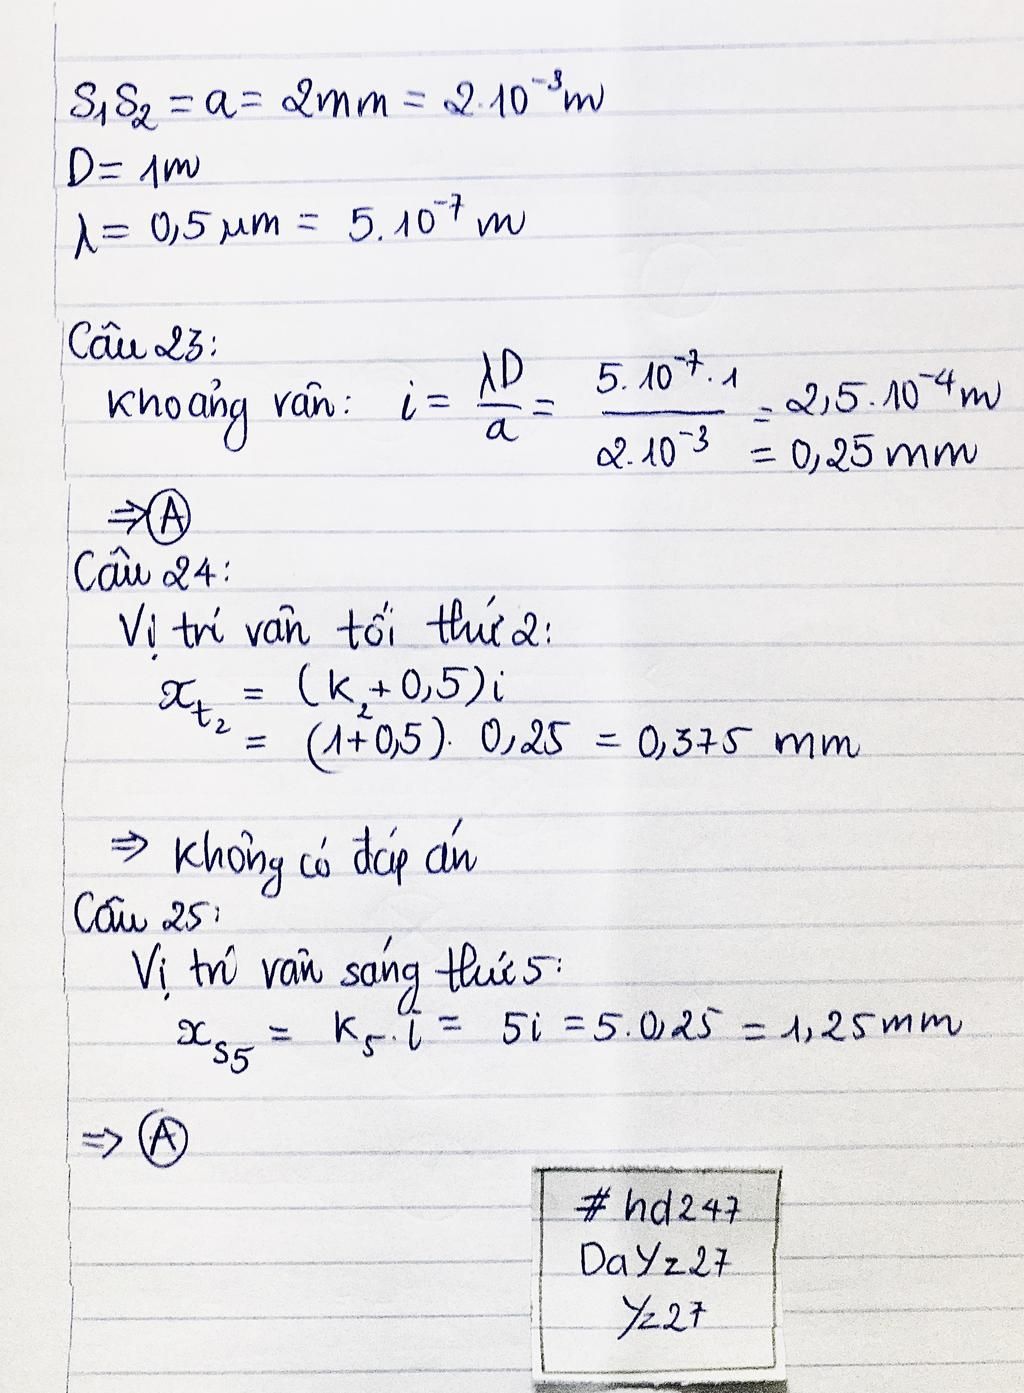 S₁S₂ = a = 2mm = 2.10⁻³m
D = 1m
λ = 0,5 μm = 5.10⁻⁷ m
Câu 23:
Khoảng vân: i = λD/a = 5.10⁻⁷.1/2.10⁻³ = 2,5.10⁻⁴m
= 0,25 mm
⇒ A
Câu 24:
Vị trí vân tối thứ 2:
x_t₂ = (k₂ + 0,5)i
= (1+0,5). 0,25 = 0,375 mm
⇒ Không có đáp án
Câu 25:
Vị trí vân sáng thứ 5:
x_s₅ = k₅.i = 5i = 5.0,25 = 1,25mm
⇒ A
# hd247
DaYz27
Yz27